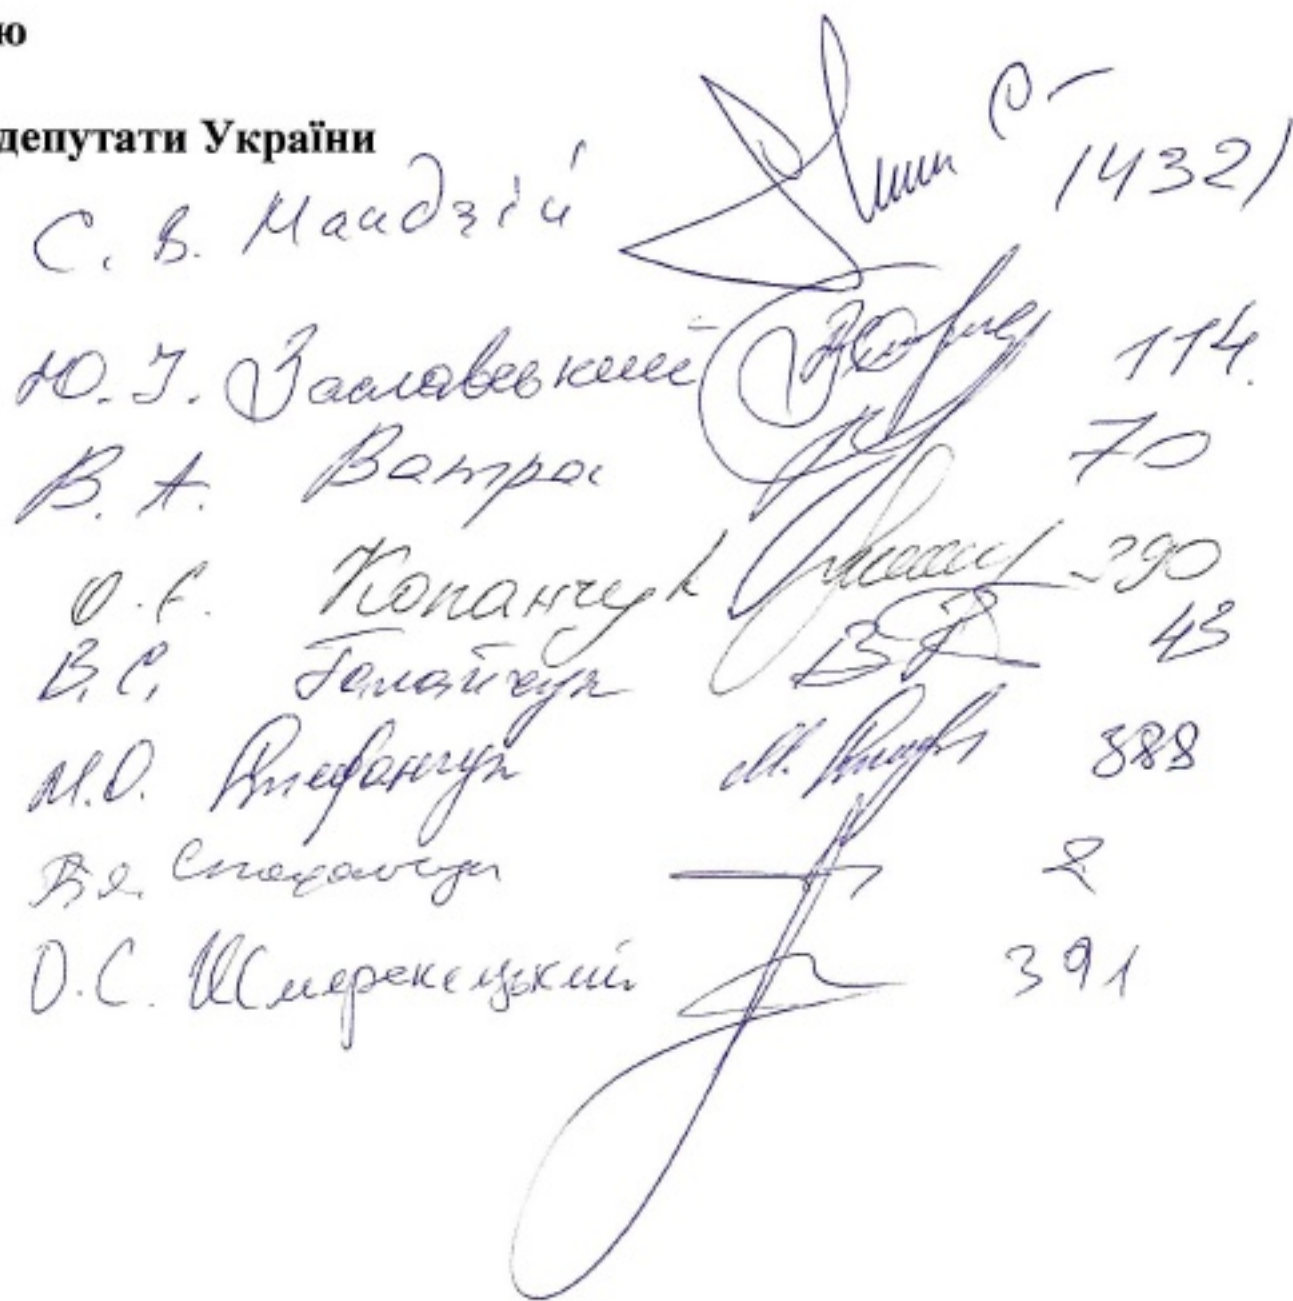 ю
депутати України
С. В. Мандзій (432)
Ю. І. Заславський 114.
В. А. Ватрас 70
О. Є. Копанчук 390
В. С. Галайчук 43
М. О. Стефанчук 388
2
О. С. Шмерекецький 391